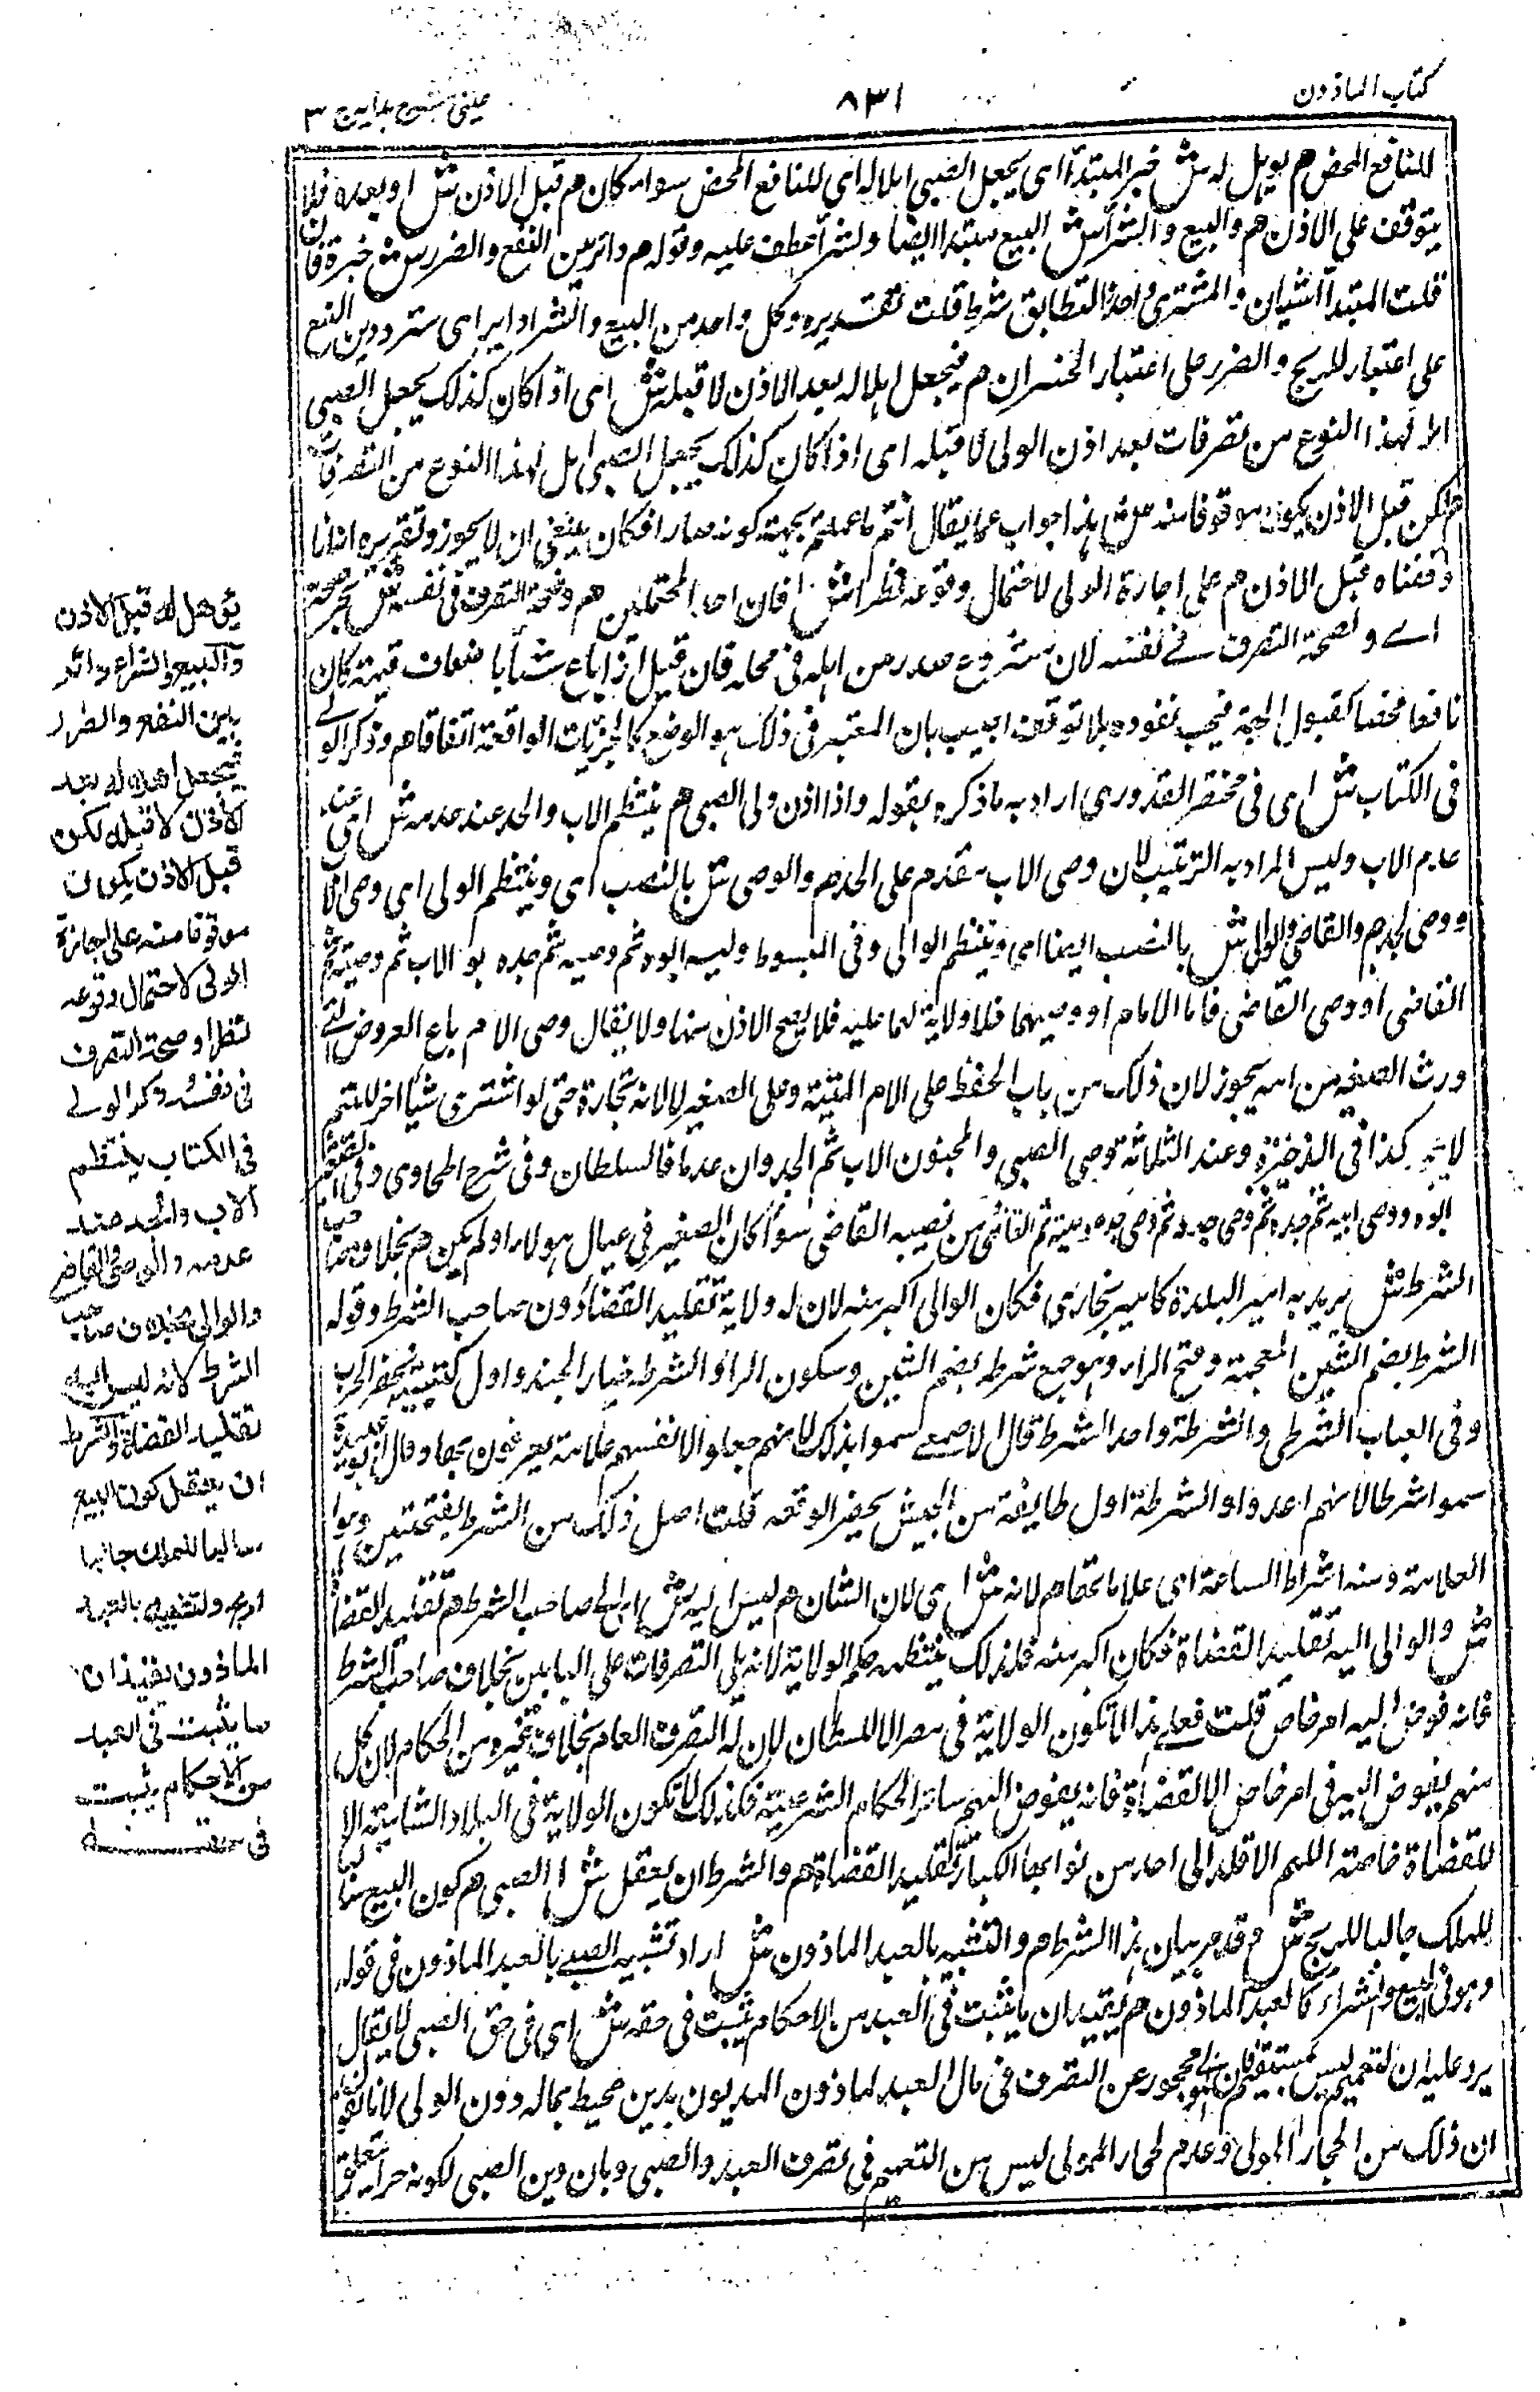 كتاب الماذون
٨٣١
عيني شرح هداية ج ٣
للنافع المحض م يوهل له ش خبر المبتدأ اى يجعل الصبي اهلا له اى للنافع المحض سواء كان م قبل الاذن ش او بعده فلا
يتوقف على الاذن م والبيع والشراء ش البيع مبتدا ايضا والشراء عطف عليه وقوله م دائر بين النفع والضرر ش خبره فان
قلت المبتدأ اشيان والمشترى واحد التطابق شرط قلت تقديره وكل واحد من البيع والشراء دائر اى متردد بين النفع
على اعتبار الربح والضرر على اعتبار الخسران م فيجعل اهلا له بعد الاذن لا قبله ش اى اذا كان كذلك يجعل الصبى
اهلا لهذا النوع من تصرفات بعد اذن الولى لا قبله اى اذا كان كذلك يجعل الصبى اهل لهذا النوع من التصرفات
م لكن قبل الاذن يكون موقوفا منه ش هذا جواب عما يقال انتم ما عملتم بجهة كونه ضارا فكان ينبغى ان لا يجوز وتقريره اننا
وقفناه قبل الاذن م على اجازة الولى لاحتمال وقوعه نظرا ش فان احد المحتملين م وصحة التصرف فى نفسه ش بجر صحة
اے ولصحة التصرف فے نفسه لان مشروع صدر من اهله فى محله فان قيل اذا باع شيأ باضعاف قيمته كان
نافعا محضا كقبول الهبة فيجب نفوذه بلا توقف اجيب بان المعتبر فى ذلك هو الوضع كالجزئيات الواقعة اتفاقا م وذكر الولے
فى الكتاب ش اى فى مختصر القدورى اراد به ما ذكره بقوله واذا اذن ولى الصبى م ينتظم الاب والجد عند عدمه ش اى عند
عدم الاب وليس المراد به الترتيب لان وصى الاب مقدم على الجد م والوصى ش بالنصب اى وينتظم الولى اى وصى الاب
ووصى الجد م والقاضى والوالى ش بالنصب ايضا اى وينتظم الوالى وفى المبسوط وليه ابوه ثم وصيه ثم جده ابو الاب ثم وصيه ثم
القاضى او وصى القاضى فاما الام او وصيها فلا ولاية لهما عليه فلا يصح الاذن منها ولا يقال وصى الام باع العروض التے
ورث الصغير من امه يجوز لان ذلك من باب الحفظ على الام الميتة وعلى الصغير لا لانه تجارة حتى لو اشترى شيأ اخر لليتيم
لا يجوز كذا فى الذخيرة وعند الثلاثة توصى الصبى والمجنون الاب ثم الجد وان عدما فالسلطان وفى شرح الطحاوى وفى الصغير
ابوه ووصى ابيه ثم جده ثم وصى جده ثم وصى وصيه ثم القاضى من نصبه القاضى سواء كان الصغير فى عيال هولاء او لم يكن م بخلاف صاحب
الشرط ش يريد به امير البلدة كامير بخارى فكان الوالى اكبر منه لان له ولاية تقليد القضاء دون صاحب الشرط وقوله
الشرط بضم الشين المعجمة وفتح الراء وهو جمع شرطه بضم الشين وسكون الراء والشرطه خيار الجند واول كتيبة تحضر الحرب
وفى العباب الشرطى والشرطة واحد الشرط قال الاصمعے سموا بذلك لانهم جعلوا لانفسهم علامة يعرفون بها وقال ابو عبيدة
سموا شرطا لانهم اعدوا والشرطة اول طايفة من الجيش يحضر الوقعه قلت اصل ذلك من الشرط بفتحتين وهو
العلامة ومنه اشراط الساعة اى علاماتها م لانه ش اى لان الشان م ليس اليه ش اى الى صاحب الشرط م تقليد القضاة
ش والوالى اليه تقليد القضاة فكان اكبر منه فلذلك ينتظم حكم الولاية لانه يلى التصرفات على البابين بخلاف صاحب الشرط
فانه فوض اليه امر خاص قلت فعلے هذا لا تكون الولاية فى مصر الا للسلطان لان له التصرف العام بخلاف غيره من الحكام لان كل
منهم يفوض اليه فى امر خاص الا القضاة فانه يفوض اليهم سائر الحكام الشرعية فكذلك لا تكون الولاية فى البلاد الشامية الا
للقضاة خاصة اللهم الا قلد الى احد من نوابها الكبار تقليد القضاة م والشرط ان يعقل ش الصبى م كون البيع سالبا
للملك جالبا للربح ش وقد مر بيان هذا الشرط م والتشبيه بالعبد الماذون ش اراد تشبيه الصبے بالعبد الماذون فى قوله
وهو فى البيع والشراء كالعبد الماذون م يفيد ان ما يثبت فى العبد من الاحكام يثبت فى حقه ش اى فى حق الصبى لا يقال
يرد عليه ان التعميم ليس بمستقيم فان المولے محجور عن التصرف فى مال العبد الماذون المديون بدين محيط بماله دون الولى لانا نقول
ان ذلك من الحجار المولى وعدم لحجار المولى ليس من التعميم فى تصرف العبد والصبى وبان دين الصبى لكونه حرا متعلق
يؤهل له قبل الاذن
والبيع والشراء دائر
بين النفع والضرر
فيجعل اهلا له بعد
الاذن لا قبله لكن
قبل الاذن يكون
موقوفا منه على اجازة
الولى لاحتمال وقوعه
نظرا وصحة التصرف
فى نفسه وذكر الولے
فى الكتاب ينتظم
الاب والجد عند
عدمه والوصى والقاضى
والوالى بخلاف صاحب
الشرط لانه ليس اليه
تقليد القضاة والشرط
ان يعقل كون البيع
سالبا للملك جالبا
للربح والتشبيه بالعبد
الماذون يفيد ان
ما يثبت فى العبد
من الاحكام يثبت
فى حقه